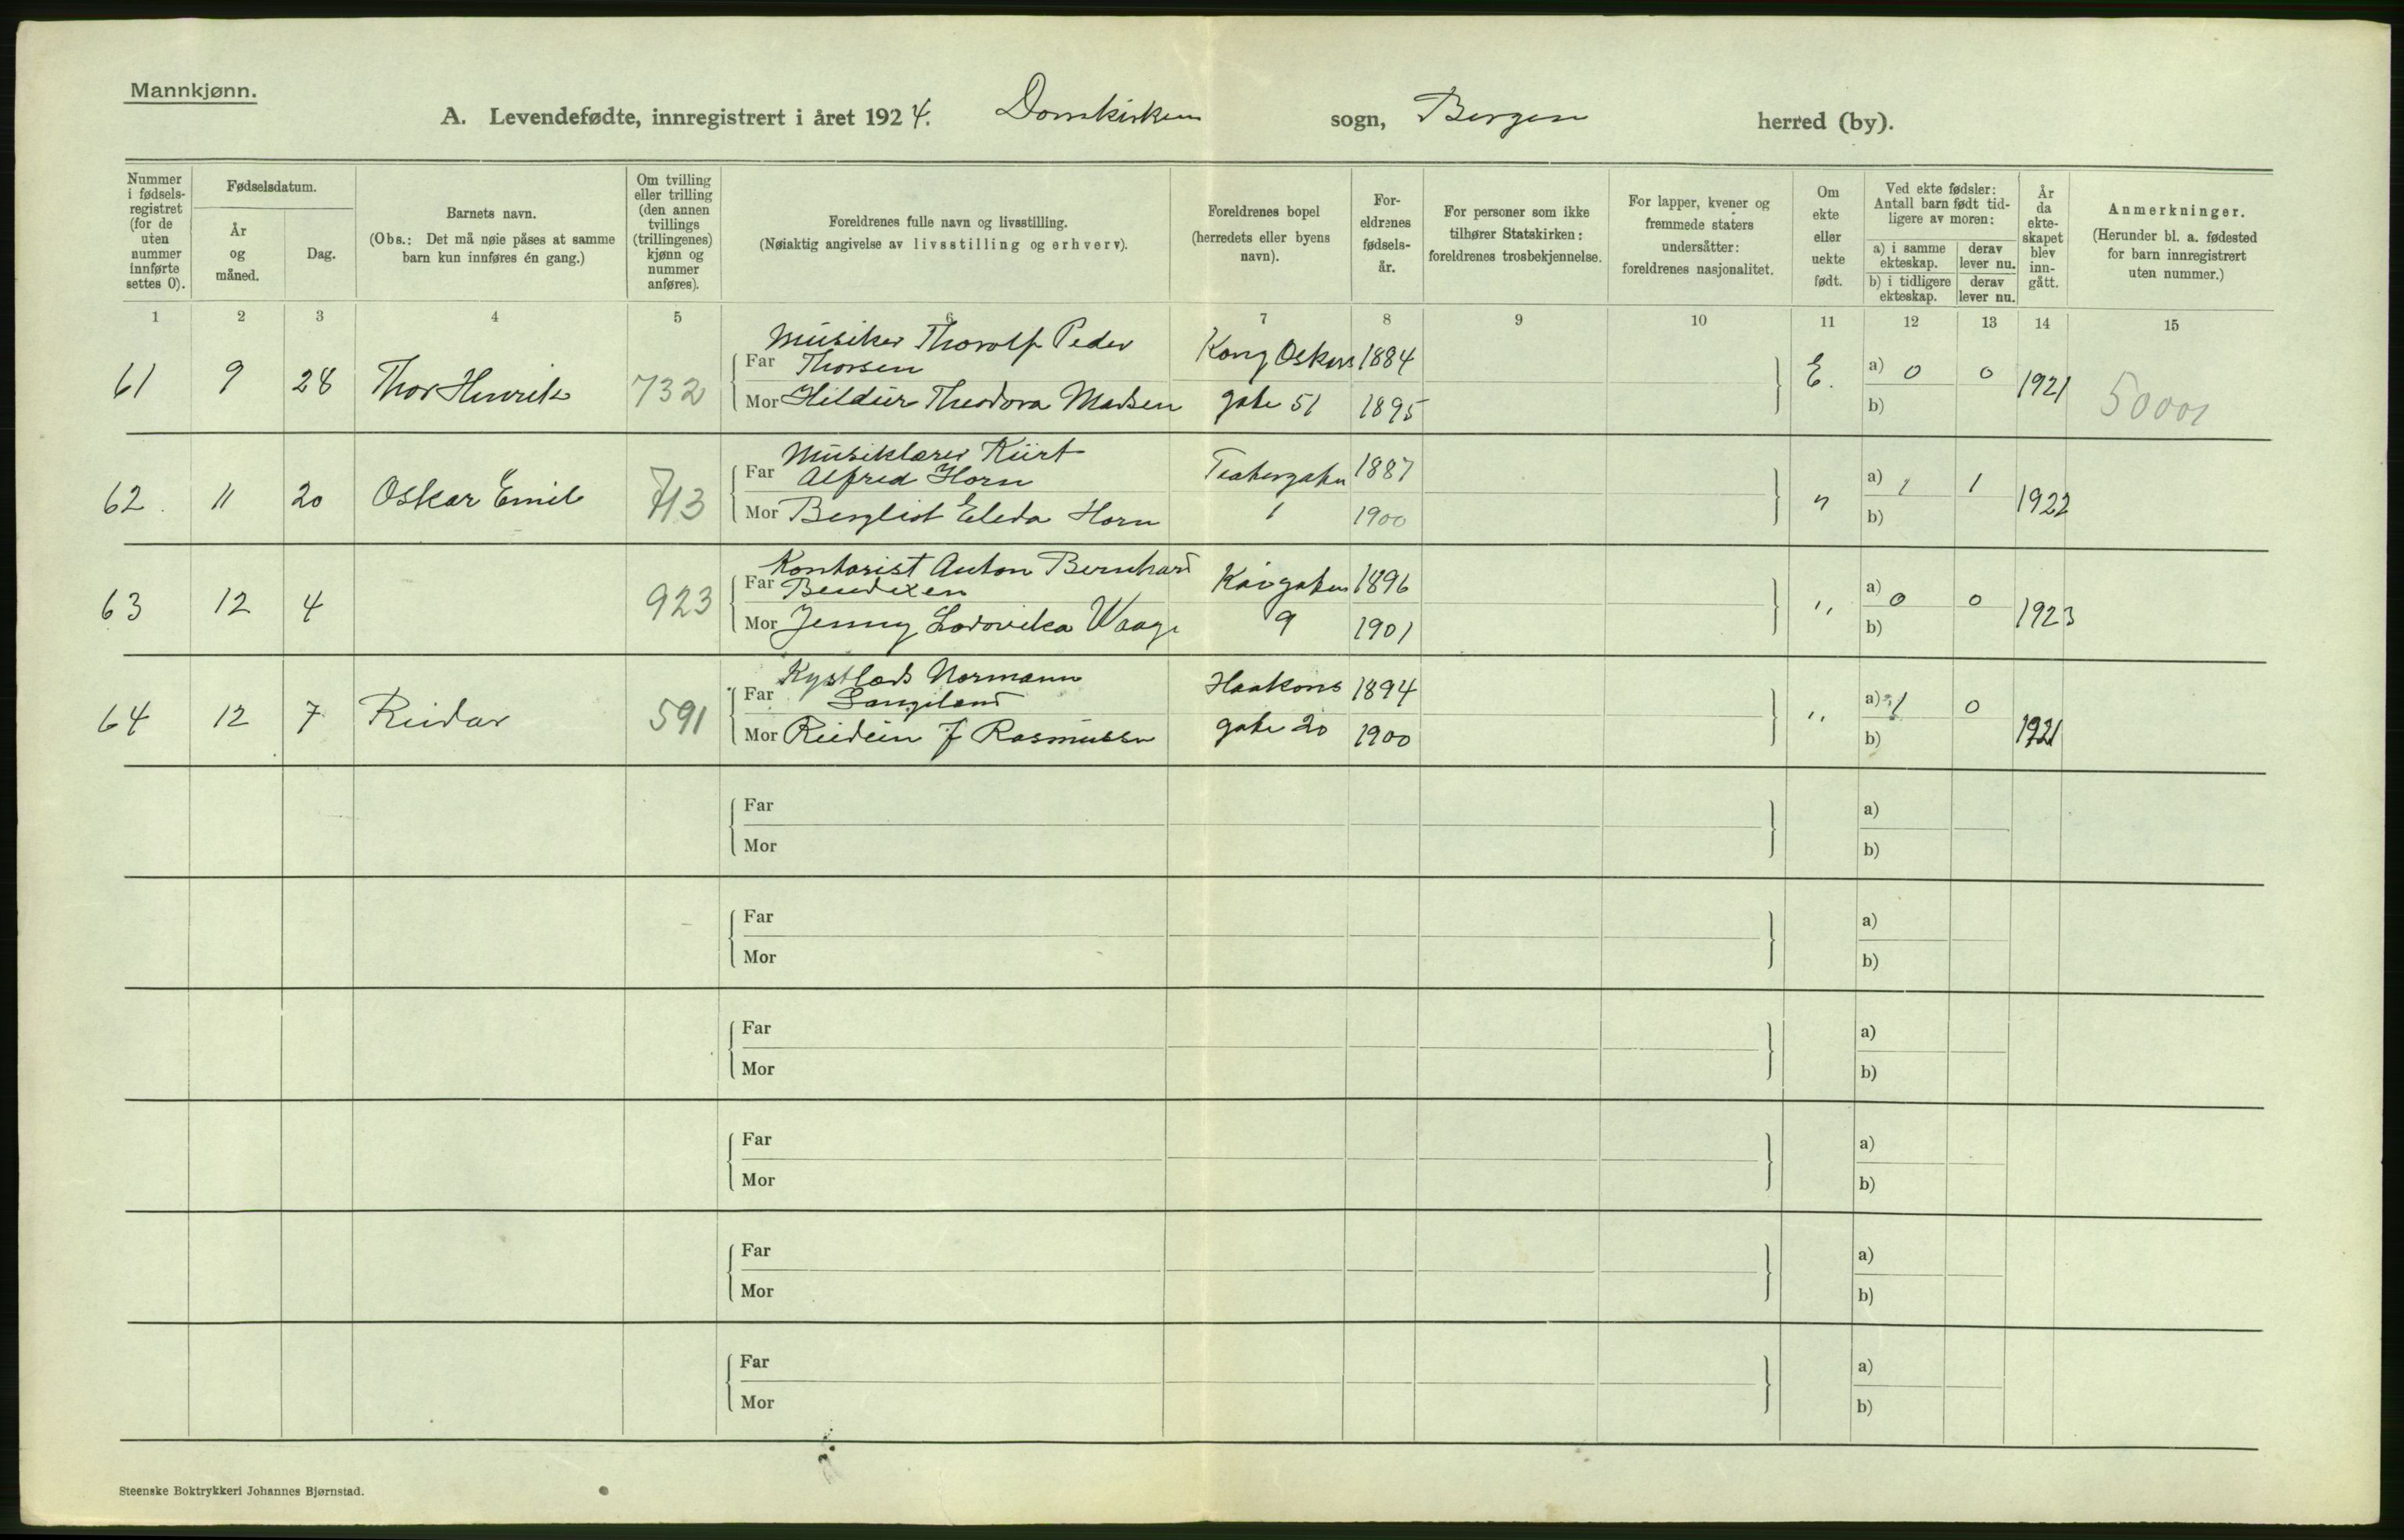 Mannkjønn.
A. Levendefødte, innregistrert i året 1924. Domkirken sogn, Bergen herred (by).
Nummer i fødsels-registret (for de uten nummer innførte settes 0).
Fødselsdatum.
År og måned.
Dag.
Barnets navn.
(Obs.: Det må nøie påses at samme barn kun innføres én gang.)
Om tvilling eller trilling (den annen tvillings (trillingenes) kjønn og nummer anføres).
Foreldrenes fulle navn og livsstilling.
(Nøiaktig angivelse av livsstilling og erhverv).
Foreldrenes bopel (herredets eller byens navn).
For-eldrenes fødsels-år.
For personer som ikke tilhører Statskirken: foreldrenes trosbekjennelse.
For lapper, kvener og fremmede staters undersåtter: foreldrenes nasjonalitet.
Om ekte eller uekte født.
Ved ekte fødsler: Antall barn født tid-ligere av moren:
a) i samme ekteskap. derav lever nu.
b) i tidligere ekteskap. derav lever nu.
År da ekte-skapet blev inn-gått.
Anmerkninger.
(Herunder bl. a. fødested for barn innregistrert uten nummer.)
1 2 3 4 5 6 7 8 9 10 11 12 13 14 15
Musiker Thorolf Peder
61 9 28 Thor Henrik 732 Far Thorsen Kong Oskars 1884 E. a) 0 0 1921 50001
Mor Hildur Theodora Madsen gate 51 1895 b)
Musiklærer Kurt
62. 11 20 Oskar Emil 713 Far Alfred Horn Teatergaten 1887 " a) 1 1 1922
Mor Bergliot Eleda Horn 1 1900 b)
Kontorist Anton Bernhard
63 12 4 923 Far Bendixen 1896 " a) 0 0 1923
Mor Jenny Lodovika Waage 9 1901 b)
Normann
64 12 7 Reidar 591 Far Langeland Haakons 1894 " a) 1 0 1921
Mor Reidun J Rasmussen gate 20 1900 b)
Far a)
Mor b)
Far a)
Mor b)
Far a)
Mor b)
Far a)
Mor b)
Far a)
Mor b)
Far a)
Mor b)
Steenske Boktrykkeri Johannes Bjørnstad.